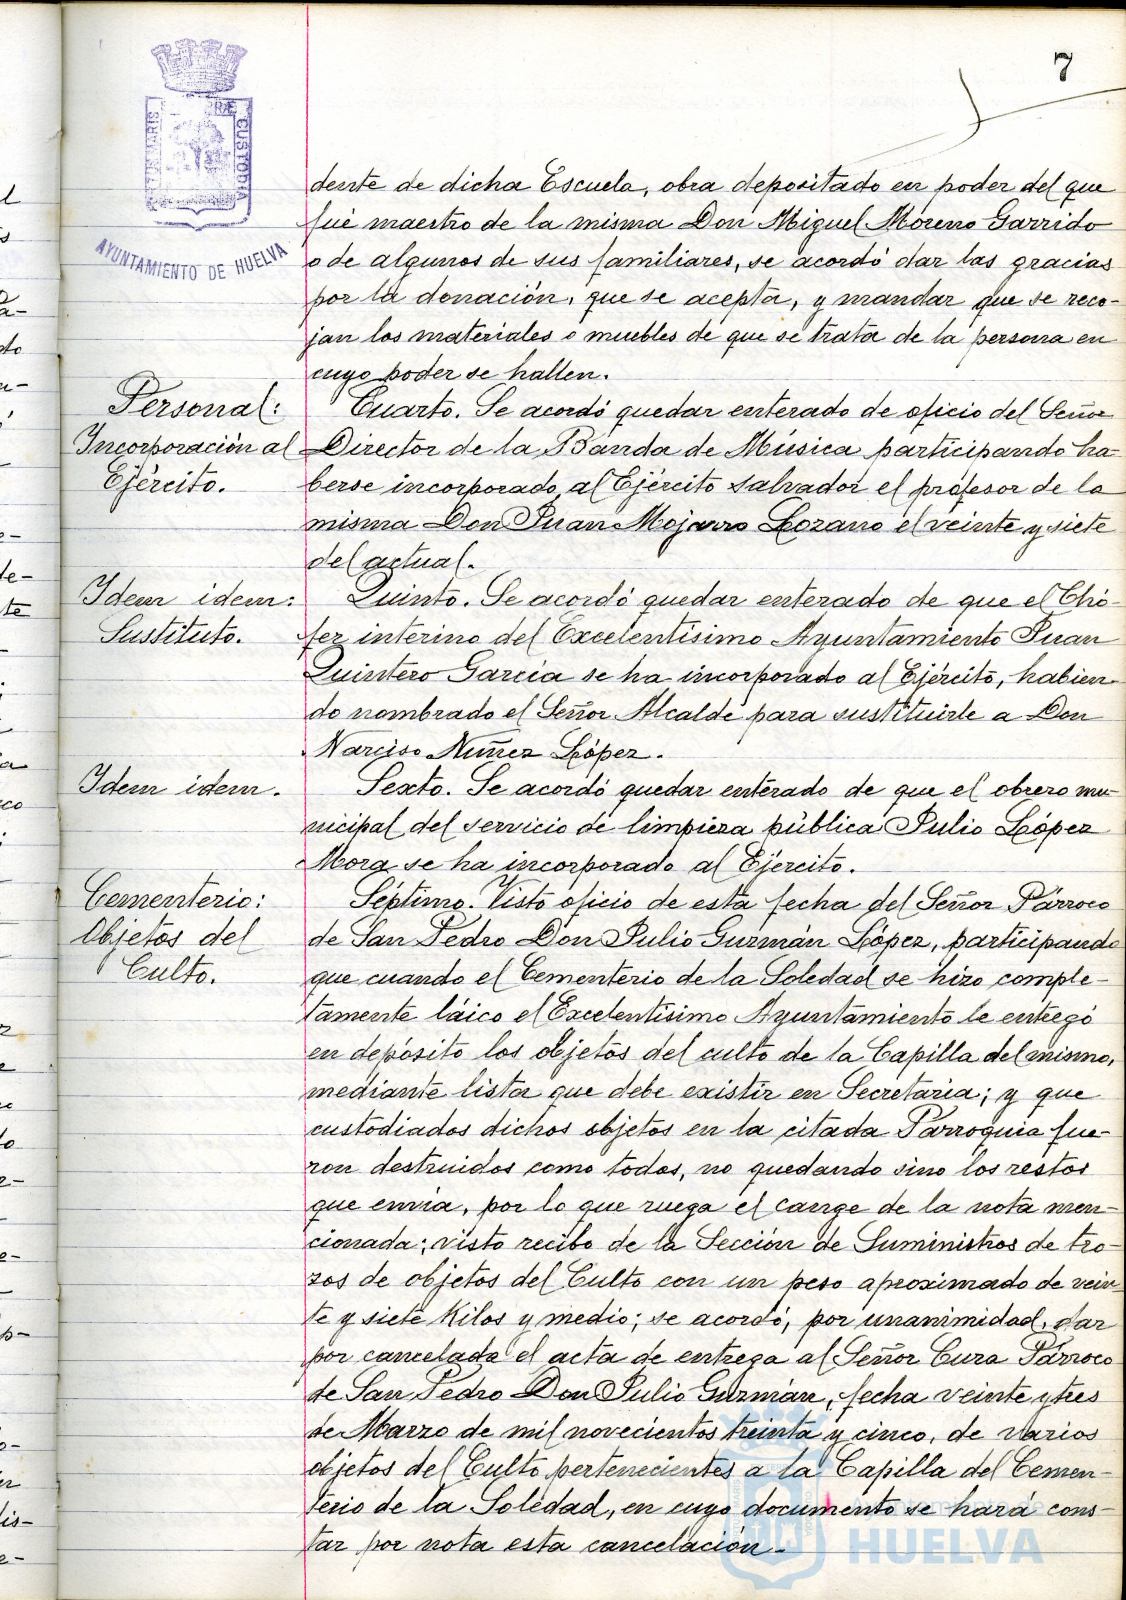 7
PORTUS MARIS
ET TERRÆ
CUSTODIA
AYUNTAMIENTO DE HUELVA
dente de dicha Escuela, obra depositado en poder del que
fué maestro de la misma Don Miguel Moreno Garrido
o de algunos de sus familiares, se acordó dar las gracias
por la donación, que se acepta, y mandar que se reco-
jan los materiales o muebles de que se trata de la persona en
cuyo poder se hallen.
Personal:
Incorporación al
Ejército.
Cuarto. Se acordó quedar enterado de oficio del Señor
Director de la Banda de Música participando ha-
berse incorporado al Ejército salvador el profesor de la
misma Don Juan Mojarro Lozano el veinte y siete
del actual.
Idem idem:
Sustituto.
Quinto. Se acordó quedar enterado de que el Chó-
fer interino del Excelentísimo Ayuntamiento Juan
Quintero García se ha incorporado al Ejército, habien-
do nombrado el Señor Alcalde para sustituirle a Don
Narciso Nuñez López.
Idem idem.
Sexto. Se acordó quedar enterado de que el obrero mu-
nicipal del servicio de limpieza pública Julio López
Mora se ha incorporado al Ejército.
Cementerio:
Objetos del
Culto.
Séptimo. Visto oficio de esta fecha del Señor Párroco
de San Pedro Don Julio Guzmán López, participando
que cuando el Cementerio de la Soledad se hizo comple-
tamente láico el Excelentísimo Ayuntamiento le entregó
en depósito los objetos del culto de la Capilla del mismo,
mediante lista que debe existir en Secretaría; y que
custodiados dichos objetos en la citada Parroquia fue-
ron destruidos como todos, no quedando sino los restos
que envía, por lo que ruega el cange de la nota men-
cionada; visto recibo de la Sección de Suministros de tro-
zos de objetos del Culto con un peso aproximado de vein-
te y siete Kilos y medio; se acordó, por unanimidad, dar
por cancelada el acta de entrega al Señor Cura Párroco
de San Pedro Don Julio Guzmán, fecha veinte y tres
de Marzo de mil novecientos treinta y cinco, de varios
objetos del Culto pertenecientes a la Capilla del Cemen-
terio de la Soledad, en cuyo documento se hará cons-
tar por nota esta cancelación.
Ayuntamiento de
HUELVA